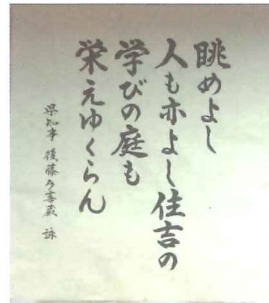 眺めよし
人も亦よし住吉の
学びの庭も
栄えゆくらん
県知事 後藤多喜蔵 詠